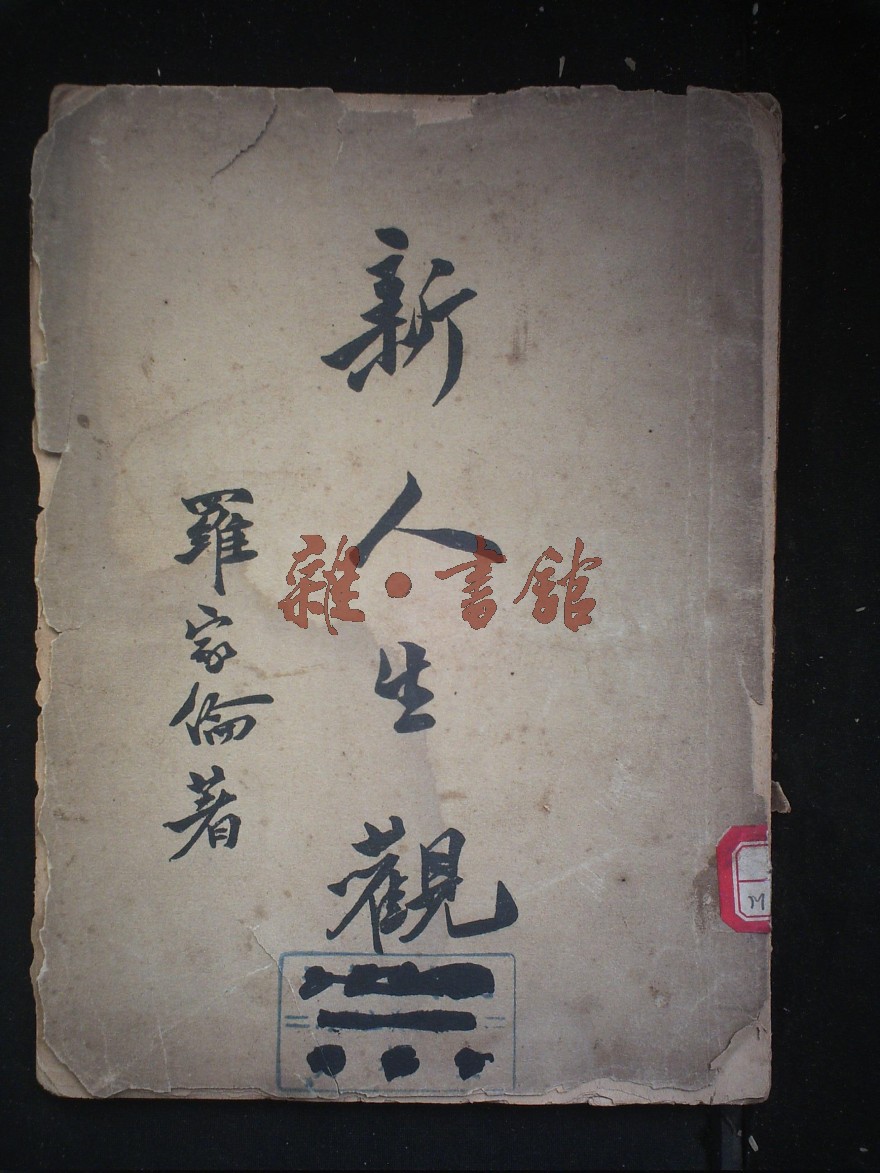 新人生觀
羅家倫著
雜·書館
M